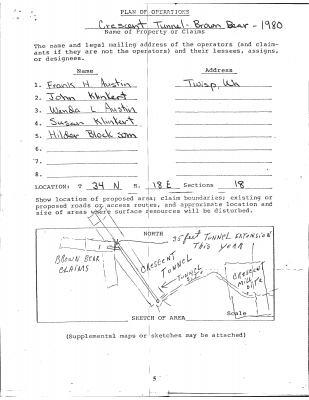 PLAN OF OPERATIONS
Crescent Tunnel - Brown Bear - 1980
Name of Property or Claims
The name and legal mailing address of the operators (and claim-
ants if they are not the operators) and their lessees, assigns,
or designees.
Name Address
1. Frank H Austin Twisp, Wa
2. John Klinkert
3. Wanda L Austin
4. Susan Klinkert
5. Hilder Block som
6.
7.
8.
LOCATION: T 34 N R. 18 E Sections 18
Show location of proposed area; claim boundaries; existing or
proposed roads or access routes, and approximate location and
size of areas where surface resources will be disturbed.
NORTH
35 feet TUNNEL EXTENSION
This YEAR
BROWN BEAR
CLAIMS
CRESCENT
TUNNEL
TUNNEL
CRESCENT
MILL
SITE
Scale
SKETCH OF AREA
(Supplemental maps or sketches may be attached)
5